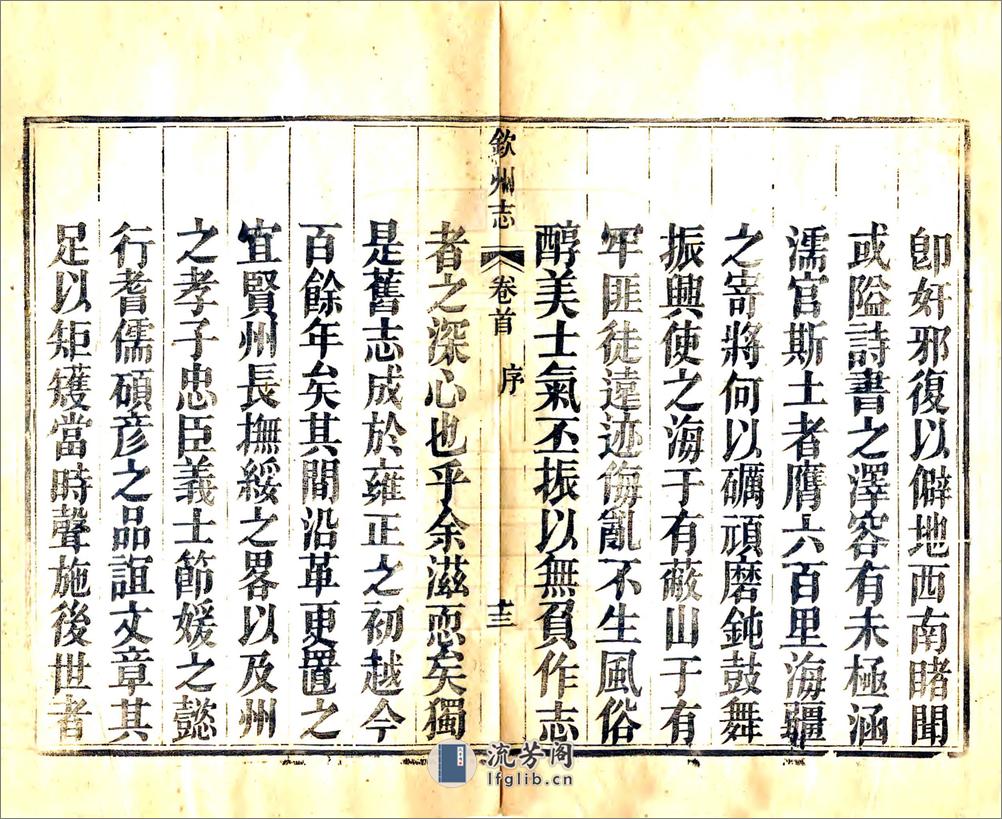 卽奸邪復以僻地西南睹聞
或隘詩書之澤容有未極涵
濡官斯土者膺六百里海疆
之寄將何以礪頑磨鈍鼓舞
振興使之海于有蔽山于有
牢匪徒遠迹侮亂不生風俗
醇美士氣丕振以無負作志
欽州志 卷首 序 十三
者之深心也乎余滋恧矣獨
是舊志成於雍正之初越今
百餘年矣其間沿革更置之
宜賢州長撫綏之畧以及州
之孝子忠臣義士節媛之懿
行耆儒碩彦之品誼文章其
足以矩矱當時聲施後世者
流芳阁
lfglib.cn